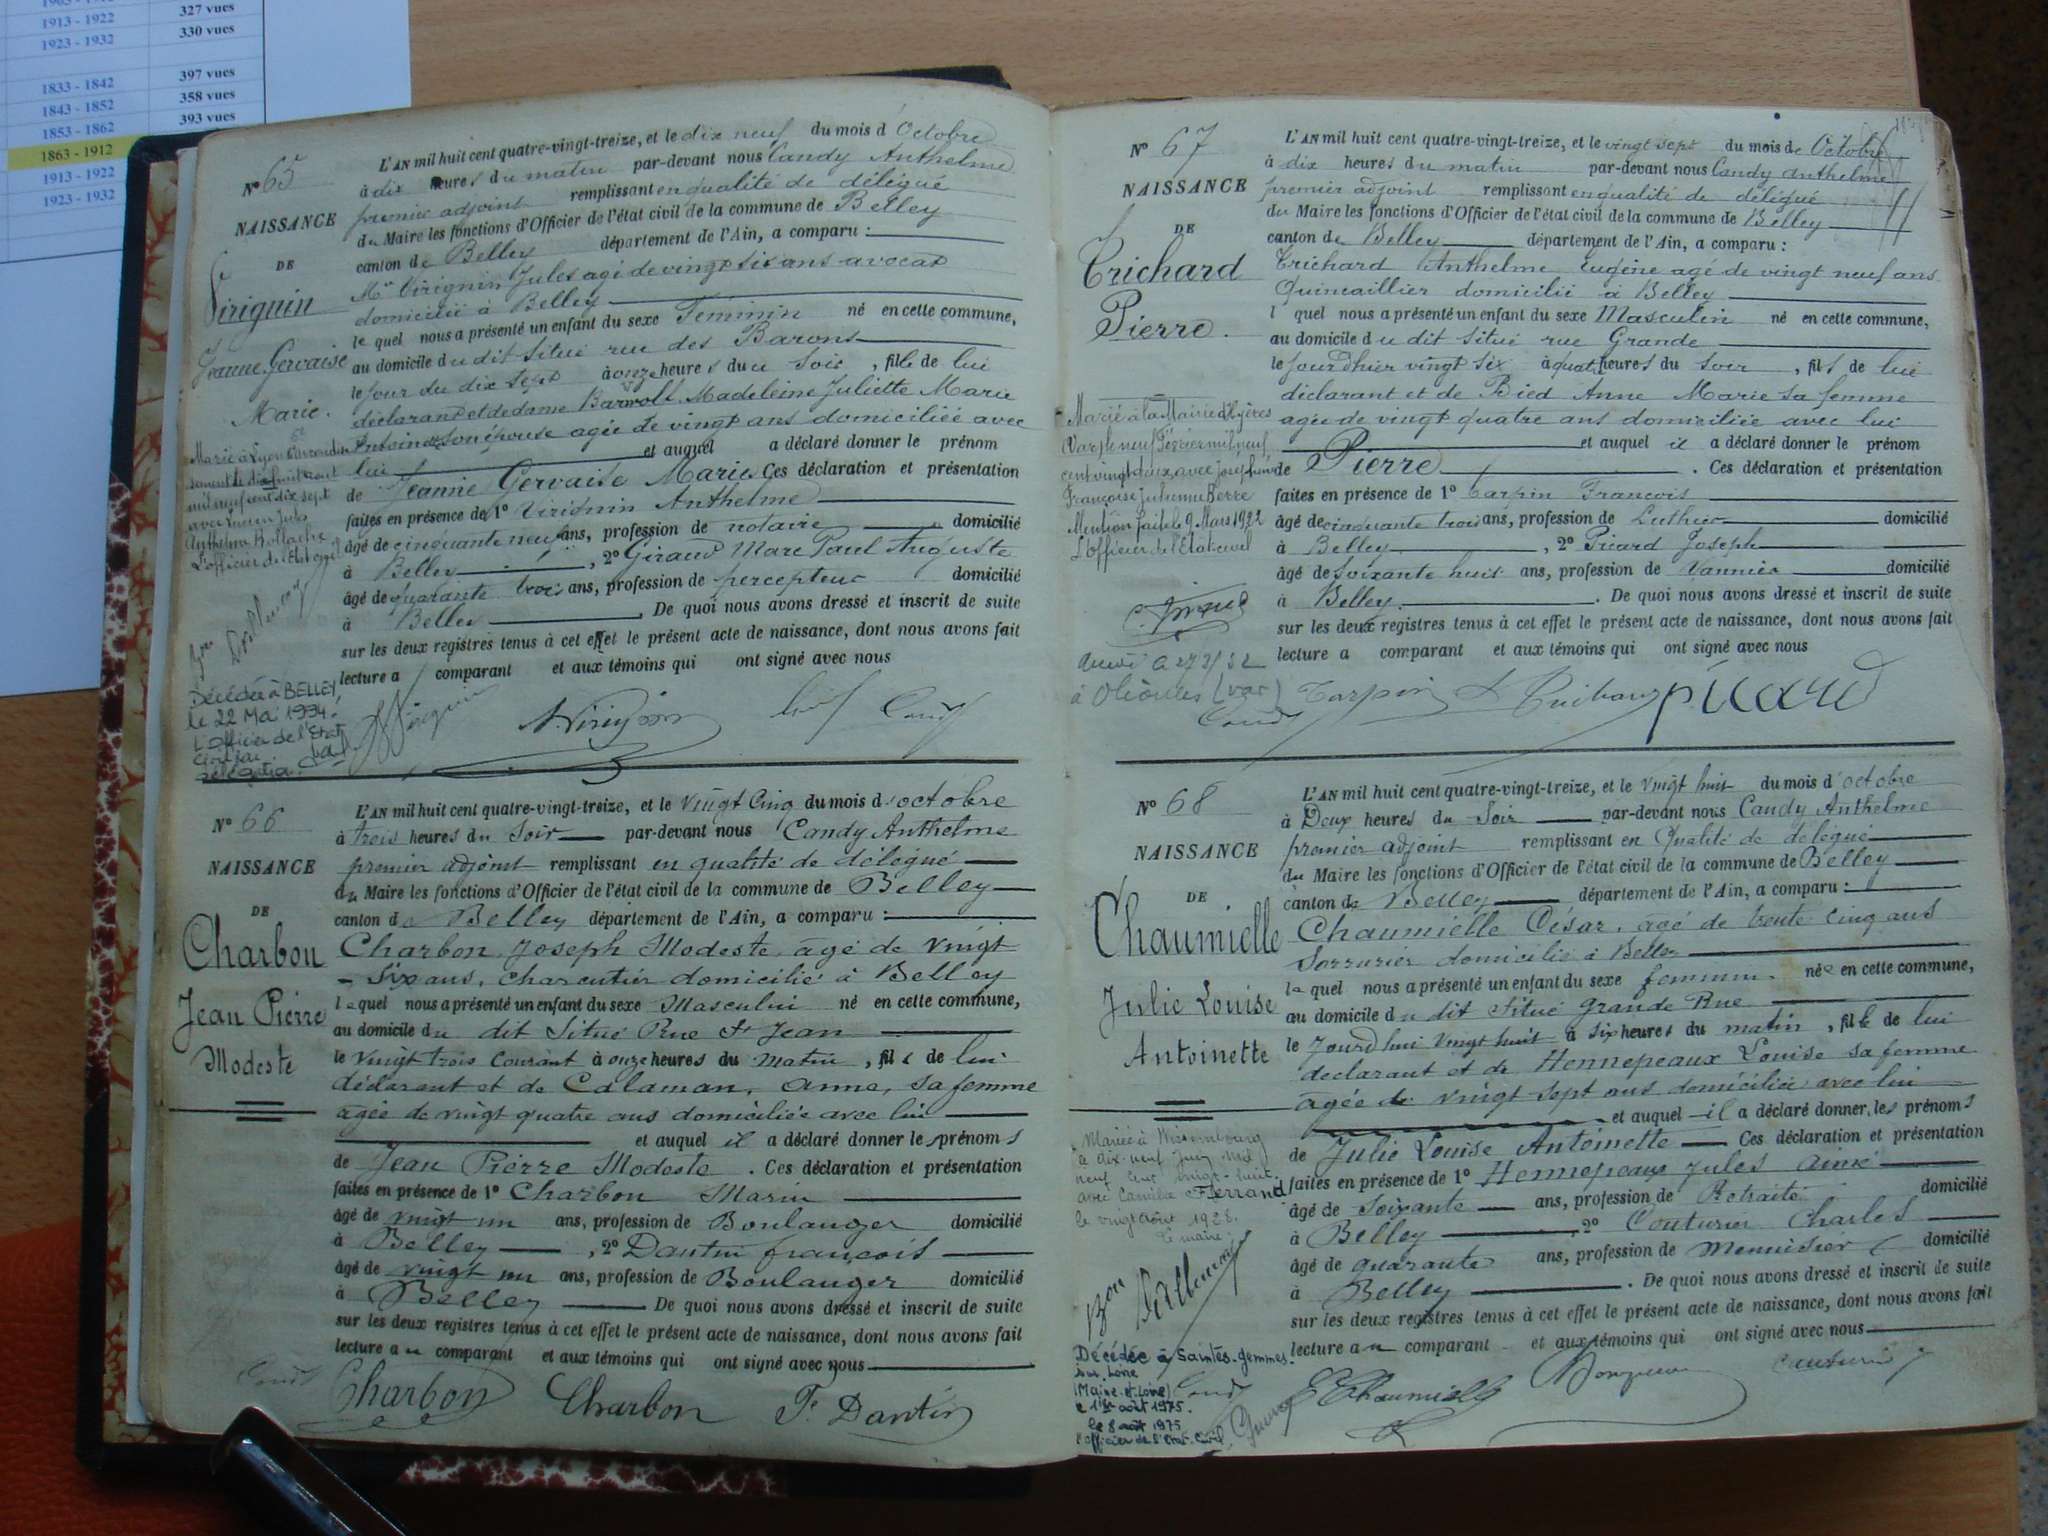 1913 - 1922 327 vues
1923 - 1932 330 vues
1833 - 1842 397 vues
1843 - 1852 358 vues
1853 - 1862 393 vues
1863 - 1912
1913 - 1922
1923 - 1932
N° 65
NAISSANCE
DE
Virignin
Jeanne Gervaise
Marie.
L'AN mil huit cent quatre-vingt-treize, et le dix neuf du mois d'Octobre
à dix heures du matin par-devant nous Candy Anthelme
premier adjoint remplissant en qualité de délégué
du Maire les fonctions d'Officier de l'état civil de la commune de Belley
canton de Belley département de l'Ain, a comparu :
Mr Virignin Jules agé de vingt six ans avocat
domicilié à Belley
le quel nous a présenté un enfant du sexe Féminin né en cette commune,
au domicile du dit situé rue des Barons
le jour du dix sept à onze heures du soir, fille de lui
déclarant et de dame Madeleine Juliette Marie
son épouse agée de vingt ans domiciliée avec
lui et auquel a déclaré donner le prénom
de Jeanne Gervaise Marie Ces déclaration et présentation
faites en présence de 1° Virignin Anthelme
âgé de cinquante neuf ans, profession de notaire domicilié
à Belley, 2° Giraud Marc Paul Auguste
âgé de quarante trois ans, profession de percepteur domicilié
à Belley. De quoi nous avons dressé et inscrit de suite
sur les deux registres tenus à cet effet le présent acte de naissance, dont nous avons fait
lecture a comparant et aux témoins qui ont signé avec nous
mil neuf cent dix sept
avec Lucien Jules
L'officier de l'Etat civil
Décédée à BELLEY
le 22 Mai 1994.
L'Officier de l'Etat
N° 66
NAISSANCE
DE
Charbon
Jean Pierre
Modeste
L'AN mil huit cent quatre-vingt-treize, et le vingt cinq du mois d'octobre
à trois heures du soir par-devant nous Candy Anthelme
premier adjoint remplissant en qualité de délégué
du Maire les fonctions d'Officier de l'état civil de la commune de Belley
canton de Belley département de l'Ain, a comparu :
Charbon Joseph Modeste, âgé de vingt
- six ans, charcutier domicilié à Belley
lequel nous a présenté un enfant du sexe Masculin né en cette commune,
au domicile du dit Situé Rue St Jean
le vingt trois courant à onze heures du matin, fils de lui
déclarant et de Calaman, Anne, sa femme
âgée de vingt quatre ans domiciliée avec lui
et auquel il a déclaré donner les prénoms
de Jean Pierre Modeste. Ces déclaration et présentation
faites en présence de 1° Charbon Marin
âgé de vingt un ans, profession de Boulanger domicilié
à Belley, 2° Dantin françois
âgé de vingt un ans, profession de Boulanger domicilié
à Belley De quoi nous avons dressé et inscrit de suite
sur les deux registres tenus à cet effet le présent acte de naissance, dont nous avons fait
lecture au comparant et aux témoins qui ont signé avec nous
Charbon Charbon F. Dantin
N° 67
NAISSANCE
DE
Trichard
Pierre.
L'AN mil huit cent quatre-vingt-treize, et le vingt sept du mois de Octobre
à dix heures du matin par-devant nous Candy Anthelme
premier adjoint remplissant en qualité de délégué
du Maire les fonctions d'Officier de l'état civil de la commune de Belley
canton de Belley département de l'Ain, a comparu :
Trichard Anthelme Eugène agé de vingt neuf ans
Quincaillier domicilié à Belley
lquel nous a présenté un enfant du sexe Masculin né en cette commune,
au domicile du dit situé rue Grande
le jourdhier vingt six à quatre heures du soir, fils de lui
déclarant et de Bied Anne Marie sa femme
agée de vingt quatre ans domiciliée avec lui
et auquel il a déclaré donner le prénom
de Pierre. Ces déclaration et présentation
faites en présence de 1° Tarpin François
âgé de cinquante trois ans, profession de Luthier domicilié
à Belley, 2° Picard Joseph
âgé de soixante huit ans, profession de Vannier domicilié
à Belley. De quoi nous avons dressé et inscrit de suite
sur les deux registres tenus à cet effet le présent acte de naissance, dont nous avons fait
lecture a comparant et aux témoins qui ont signé avec nous
Marié à la Mairie d'Hyères
Var, le neuf Février mil neuf
cent vingt deux avec Joséphine
Françoise Julienne Berre
Mention faite le 9 Mars 1922
L'officier de l'Etat civil
à Ollioules (var)
Tarpin Picard
N° 68
NAISSANCE
DE
Chaumielle
Julie Louise
Antoinette
L'AN mil huit cent quatre-vingt-treize, et le vingt huit du mois d'octobre
à Deux heures du Soir par-devant nous Candy Anthelme
premier adjoint remplissant en Qualité de délégué
du Maire les fonctions d'Officier de l'état civil de la commune de Belley
canton de Belley département de l'Ain, a comparu :
Chaumielle César, âgé de trente cinq ans
Serrurier domicilié à Belley
lequel nous a présenté un enfant du sexe féminin née en cette commune,
au domicile du dit situé Grande Rue
le jourdhui vingt huit à six heures du matin, fille de lui
déclarant et de Hennepeaux Louise sa femme
âgée de vingt sept ans domiciliée avec lui
et auquel il a déclaré donner, les prénoms
de Julie Louise Antoinette Ces déclaration et présentation
faites en présence de 1° Hennepeaux Jules Aimé
âgé de Soixante ans, profession de Retraité domicilié
à Belley 2° Couturier Charles
âgé de quarante ans, profession de Menuisier domicilié
à Belley. De quoi nous avons dressé et inscrit de suite
sur les deux registres tenus à cet effet le présent acte de naissance, dont nous avons fait
lecture au comparant et aux témoins qui ont signé avec nous
Mariée à Wissembourg
le dix neuf Juin mil
neuf cent vingt-huit
avec Camille Ferrand
le vingt août 1928.
Le maire
Décédée à Saintes-Gemmes-
sur-Loire
(Maine-et-Loire)
le 1er août 1975.
le 8 août 1975
l'officier de l'Etat-Civil.
Chaumielle